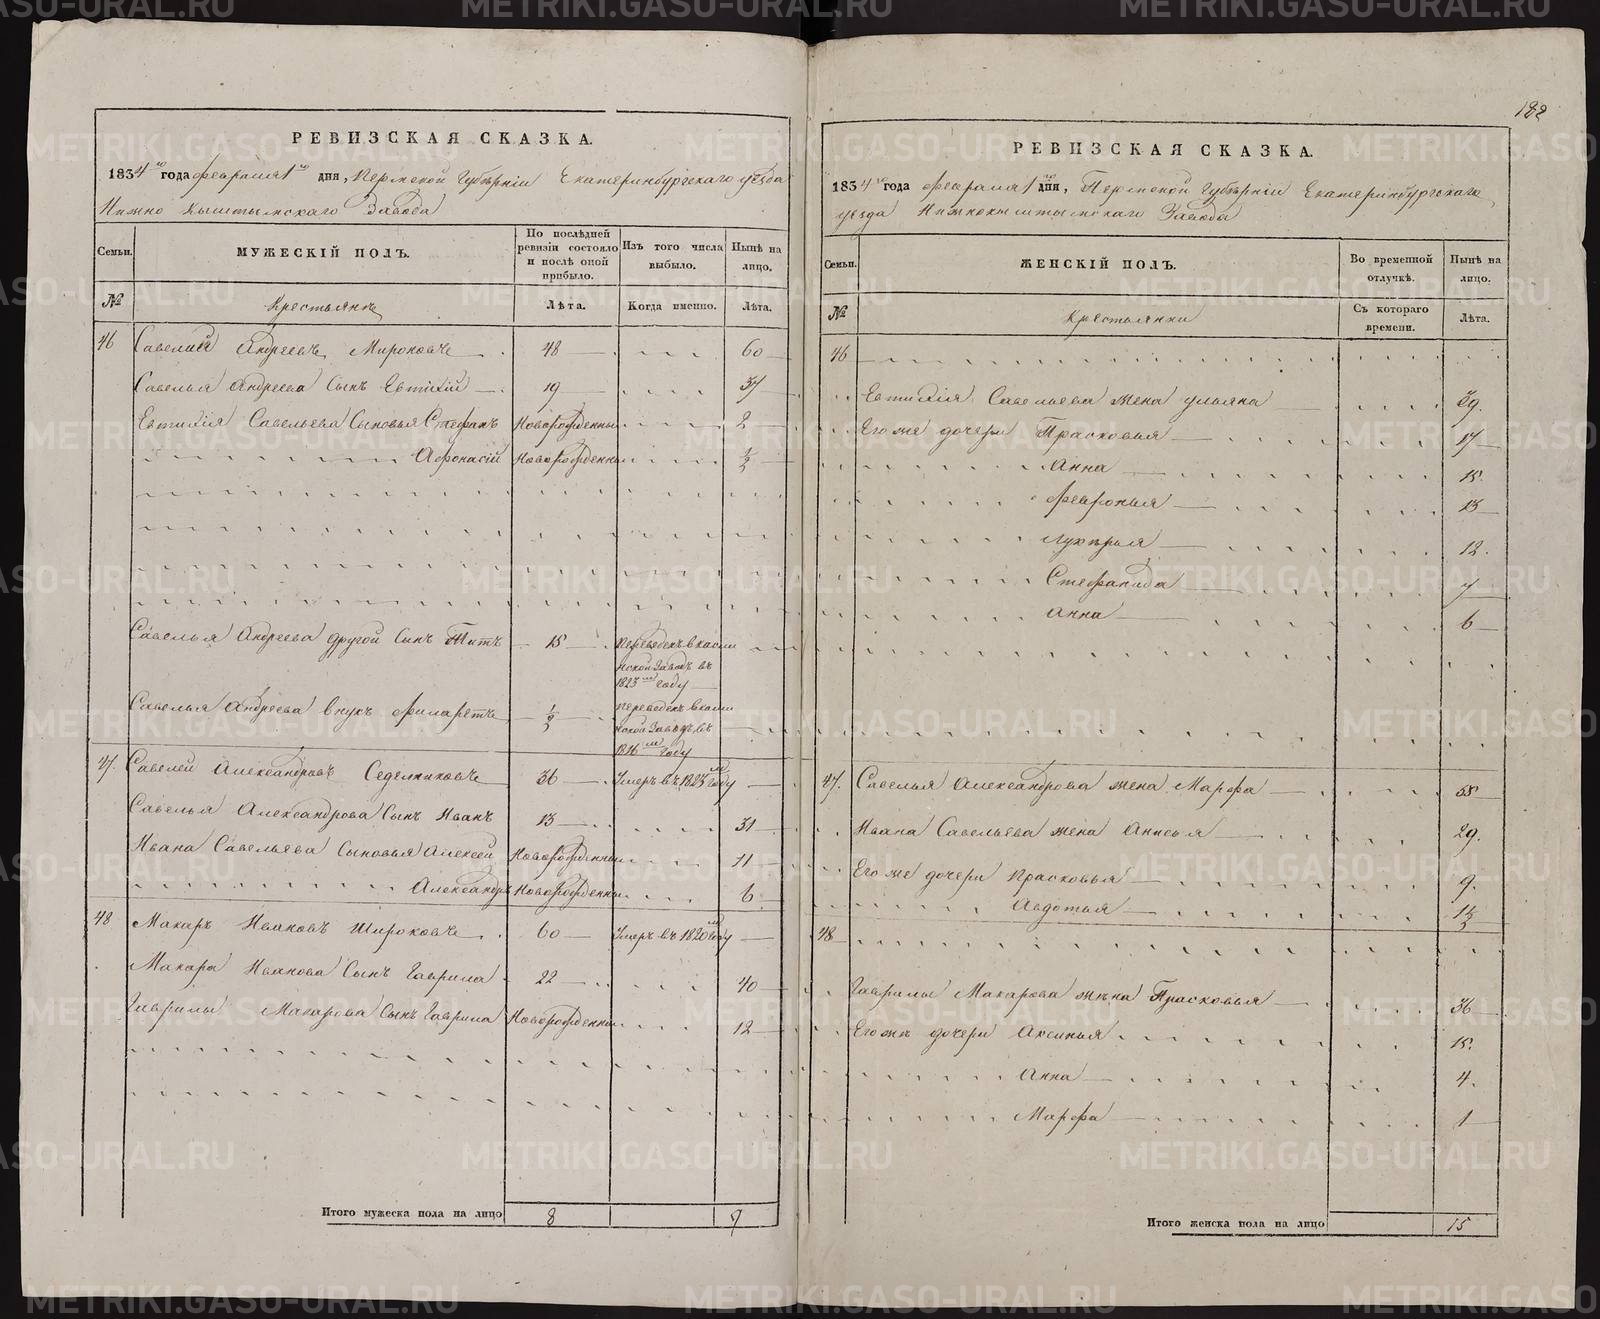 РЕВИЗСКАЯ СКАЗКА.
1834го года февраля 1го дня, Пермской Губѣрнiи Екатеринбургскаго уезда
Нижно Кыштымскаго Завода
Семьи. МУЖЕСКIЙ ПОЛЪ. По послѣдней ревизiи состояло и послѣ оной прибыло. Изъ того числа выбыло. Нынѣ на лицо.
№ Крестьянъ Лѣта. Когда именно. Лѣта.
46 Савелий Андреевъ Мироновъ 48 60
Савелья Андреева Сынъ Евтихiй 19 37
Евтихiя Савельева Сыновья Стефанъ Новорожденны 2
Афонасiй Новорожденны 1/2
Савелья Андреева другой Сынъ Титъ 15 Переведенъ в касли
нской Заводъ въ
1823м году
Савелья Андреева внукъ Филаретъ 1/2 переведенъ в касли
нской Заводъ въ
1816м году
47. Савелей Александровъ Седелниковъ 36 Умеръ въ 1823м году
Савелья Александрова Сынъ Иванъ 13 31
Ивана Савельева Сыновья Алексей Новорожденны 11
Александръ Новорожденны 6.
48 Макаръ Ивановъ Широковъ 60 Умеръ въ 1820м году
Макара Иванова Сынъ Гаврила 22 40
Гаврилы Макарова Сынъ Гаврила Новорожденны 12
Итого мужеска пола на лицо 8 7
182
РЕВИЗСКАЯ СКАЗКА.
1834го года февраля 1го дня, Пермской Губѣрнiи Екатеринбургскаго
уезда Нижнокыштымскаго Завода
Семьи. ЖЕНСКIЙ ПОЛЪ. Во временной отлучкѣ. Нынѣ на лицо.
№ Крестьянки Съ котораго времени. Лѣта.
46
Евтихiя Савельева жена ульяна 39.
Его же дочери Прасковья 17
Анна 15.
Февронья 13
Лукѣрья 12.
Стефанида 7
Анна 6
47. Савелья Александрова жена Марфа 55
Ивана Савельева жена Анисья 29.
Его же дочери Прасковья 9.
Авдотья 1 1/2
48
Гаврилы Макарова жѣна Прасковья 36
Его жъ дочери Аксинья 15.
Анна 4.
Марфа 1
Итого женска пола на лицо 15
METRIKI.GASO-URAL.RU